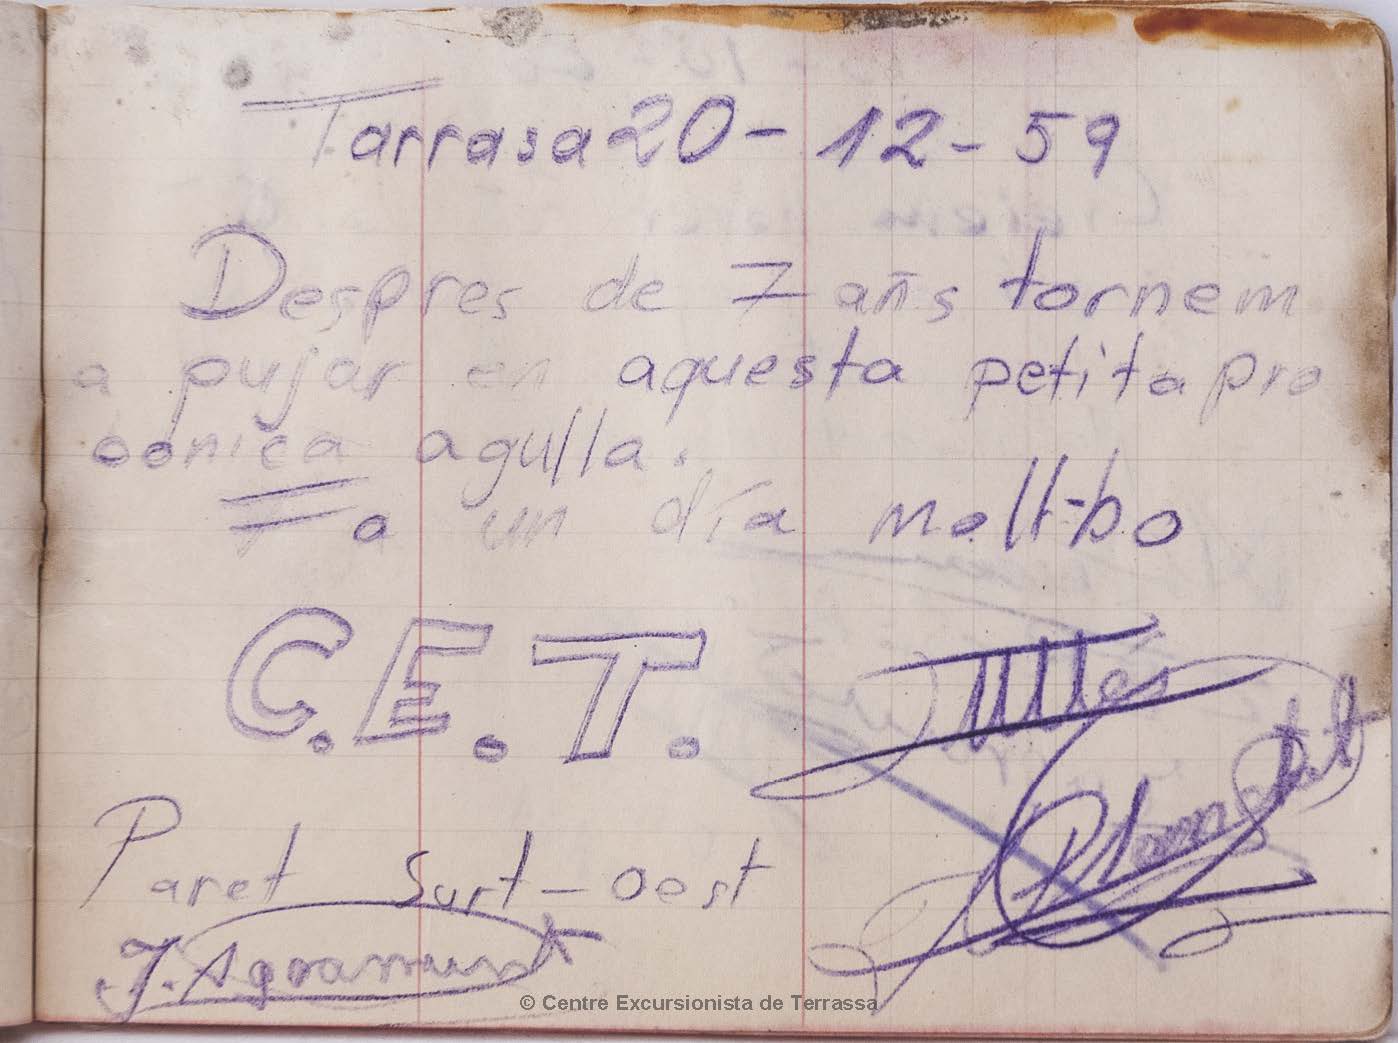 Tarrasa 20-12-59
Despres de 7 añs tornem
a pujar en aquesta petita pro
conica agulla.
Fa un día molt-bo
C.E.T.
Paret surt-oest
J. Agramunt
© Centre Excursionista de Terrassa